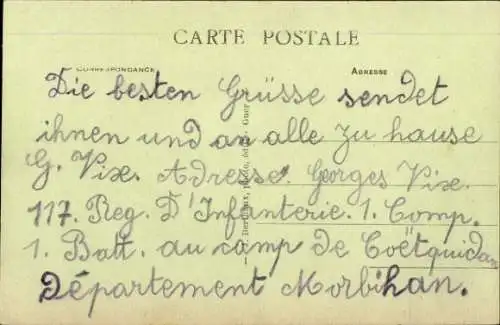 CARTE POSTALE
CORRESPONDANCE
ADRESSE
Die besten Grüsse sendet
ihnen und an alle zu hause
G. Vix. Adresse. Georges Vix.
117. Reg. D'Infanterie. 1. Comp.
1. Batt. au camp de Coëtquidan
Département Morbihan.